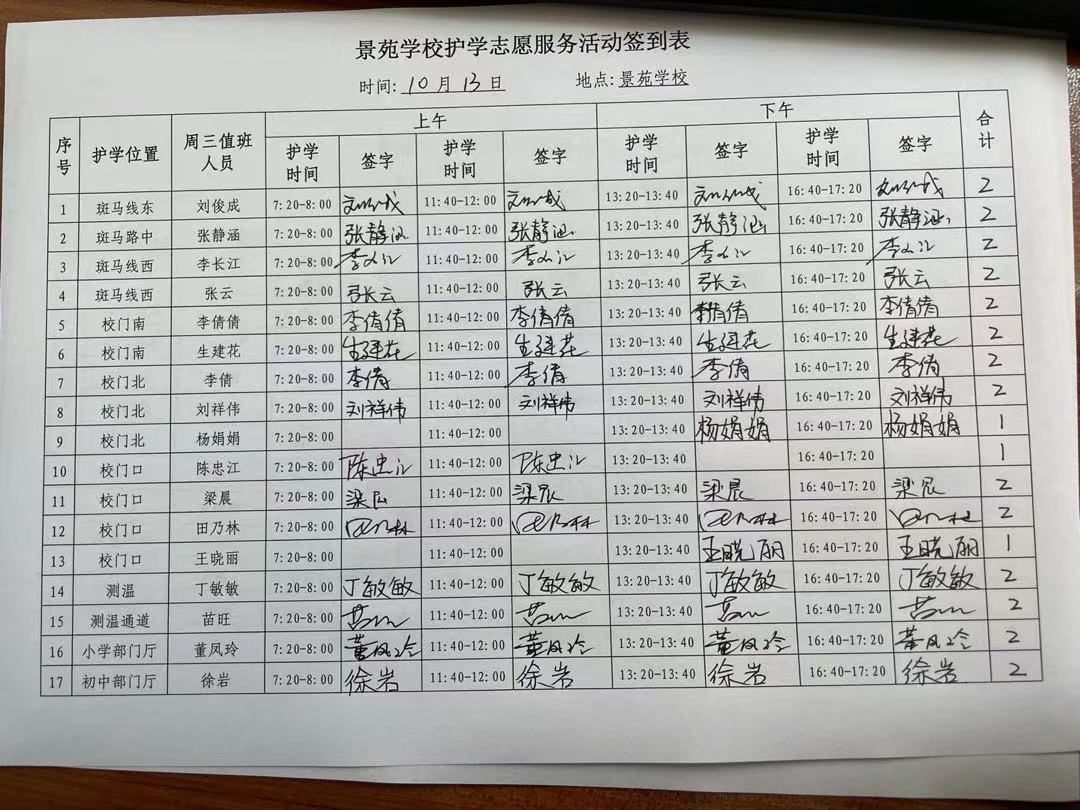 景苑学校护学志愿服务活动签到表
时间: 10 月 13 日 地点: 景苑学校
序号 护学位置 周三值班人员 上午 下午 合计
护学时间 签字 护学时间 签字 护学时间 签字 护学时间 签字
1 斑马线东 刘俊成 7:20-8:00 11:40-12:00 13:20-13:40 16:40-17:20 2
2 斑马路中 张静涵 7:20-8:00 张静涵 11:40-12:00 张静涵 13:20-13:40 张静涵 16:40-17:20 张静涵 2
3 斑马线西 李长江 7:20-8:00 11:40-12:00 13:20-13:40 16:40-17:20 2
4 斑马线西 张云 7:20-8:00 张云 11:40-12:00 张云 13:20-13:40 张云 16:40-17:20 张云 2
5 校门南 李倩倩 7:20-8:00 李倩倩 11:40-12:00 李倩倩 13:20-13:40 李倩倩 16:40-17:20 李倩倩 2
6 校门南 生建花 7:20-8:00 生建花 11:40-12:00 生建花 13:20-13:40 生建花 16:40-17:20 生建花 2
7 校门北 李倩 7:20-8:00 李倩 11:40-12:00 李倩 13:20-13:40 李倩 16:40-17:20 李倩 2
8 校门北 刘祥伟 7:20-8:00 刘祥伟 11:40-12:00 刘祥伟 13:20-13:40 刘祥伟 16:40-17:20 刘祥伟 2
9 校门北 杨娟娟 7:20-8:00 11:40-12:00 13:20-13:40 杨娟娟 16:40-17:20 杨娟娟 1
10 校门口 陈忠江 7:20-8:00 陈忠江 11:40-12:00 陈忠江 13:20-13:40 16:40-17:20 1
11 校门口 梁晨 7:20-8:00 梁晨 11:40-12:00 梁晨 13:20-13:40 梁晨 16:40-17:20 梁晨 2
12 校门口 田乃林 7:20-8:00 田乃林 11:40-12:00 田乃林 13:20-13:40 田乃林 16:40-17:20 田乃林 2
13 校门口 王晓丽 7:20-8:00 11:40-12:00 13:20-13:40 王晓丽 16:40-17:20 王晓丽 1
14 测温 丁敏敏 7:20-8:00 丁敏敏 11:40-12:00 丁敏敏 13:20-13:40 丁敏敏 16:40-17:20 丁敏敏 2
15 测温通道 苗旺 7:20-8:00 11:40-12:00 13:20-13:40 16:40-17:20 2
16 小学部门厅 董凤玲 7:20-8:00 董凤玲 11:40-12:00 董凤玲 13:20-13:40 董凤玲 16:40-17:20 董凤玲 2
17 初中部门厅 徐岩 7:20-8:00 徐岩 11:40-12:00 徐岩 13:20-13:40 徐岩 16:40-17:20 徐岩 2